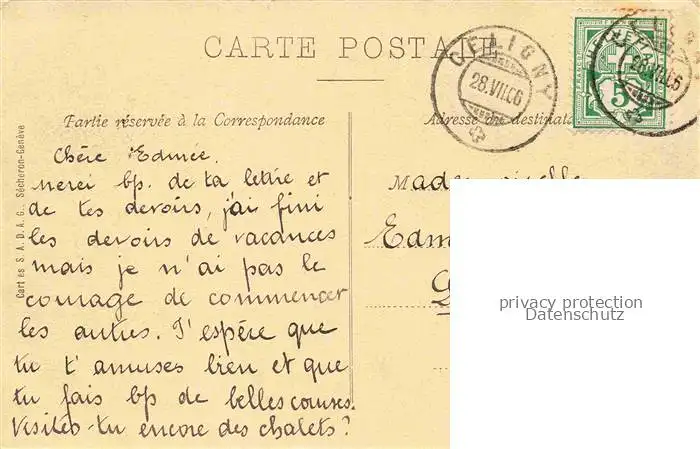 CARTE POSTALE
CÉLIGNY
28.VII.06
5
Partie réservée à la Correspondance
Adresse du destinata
Cartes S.A.D.A.G., Sécheron-Genève
Chère Edmée.
Merci bp. de ta lettre et
de tes devoirs, j'ai fini
les devoirs de vacances
mais je n'ai pas le
courage de commencer
les autres. J'espère que
tu t'amuses bien et que
tu fais bp de belles courses.
Visites-tu encore des chalets?
Mademoiselle
Edm
privacy protection
Datenschutz